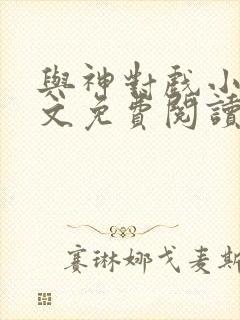 與神對戲小
文免費閱讀
賽琳娜戈麦斯